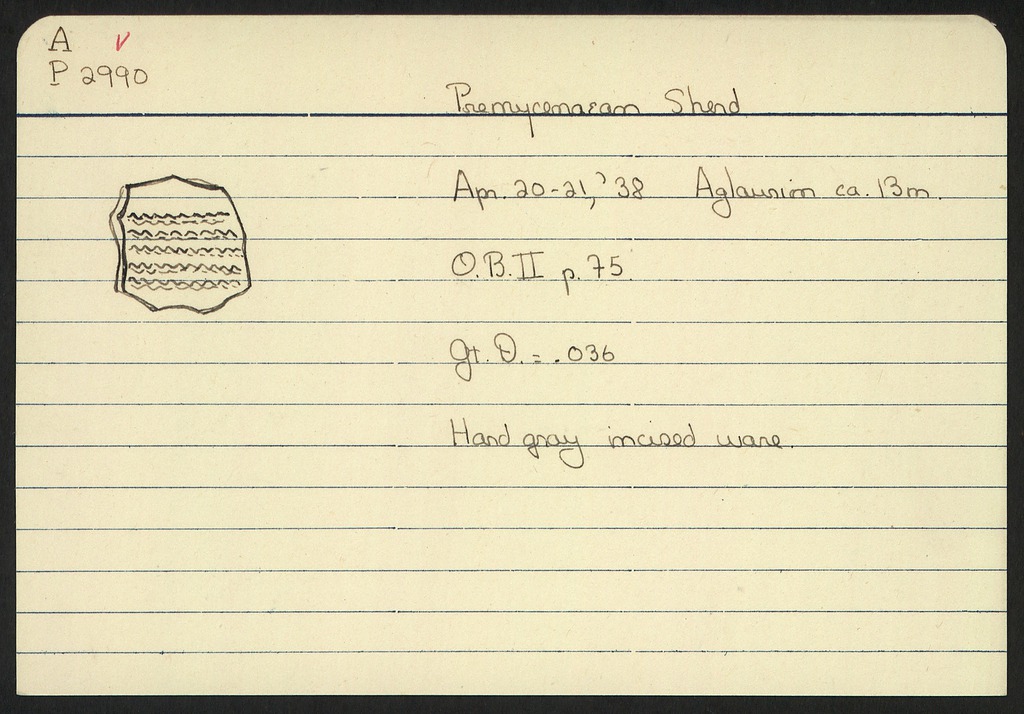 A V
P 2990
Premycenaean Sherd
Apr. 20-21, '38 Aglaurion ca. 13m.
O.B. II p. 75.
Gt. D. = .036
Hard gray incised ware.